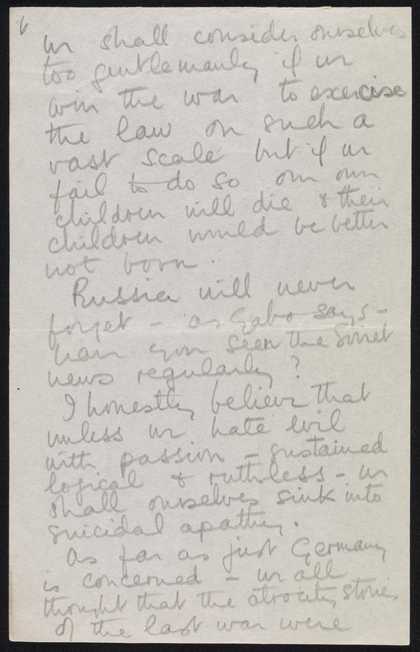 we shall consider ourselves
too gentlemanly if we
win the war to exercise
the law on such a
vast scale but if we
fail to do so our own
children will die & their
children would be better
not born.
Russia will never
forget – as Gabo says –
have you seen the Soviet
news regularly?
I honestly believe that
unless we hate evil
with passion – sustained
logical & ruthless – we
shall ourselves sink into
suicidal apathy.
As far as just Germany
is concerned – we all
thought that the atrocity stories
of the last war were